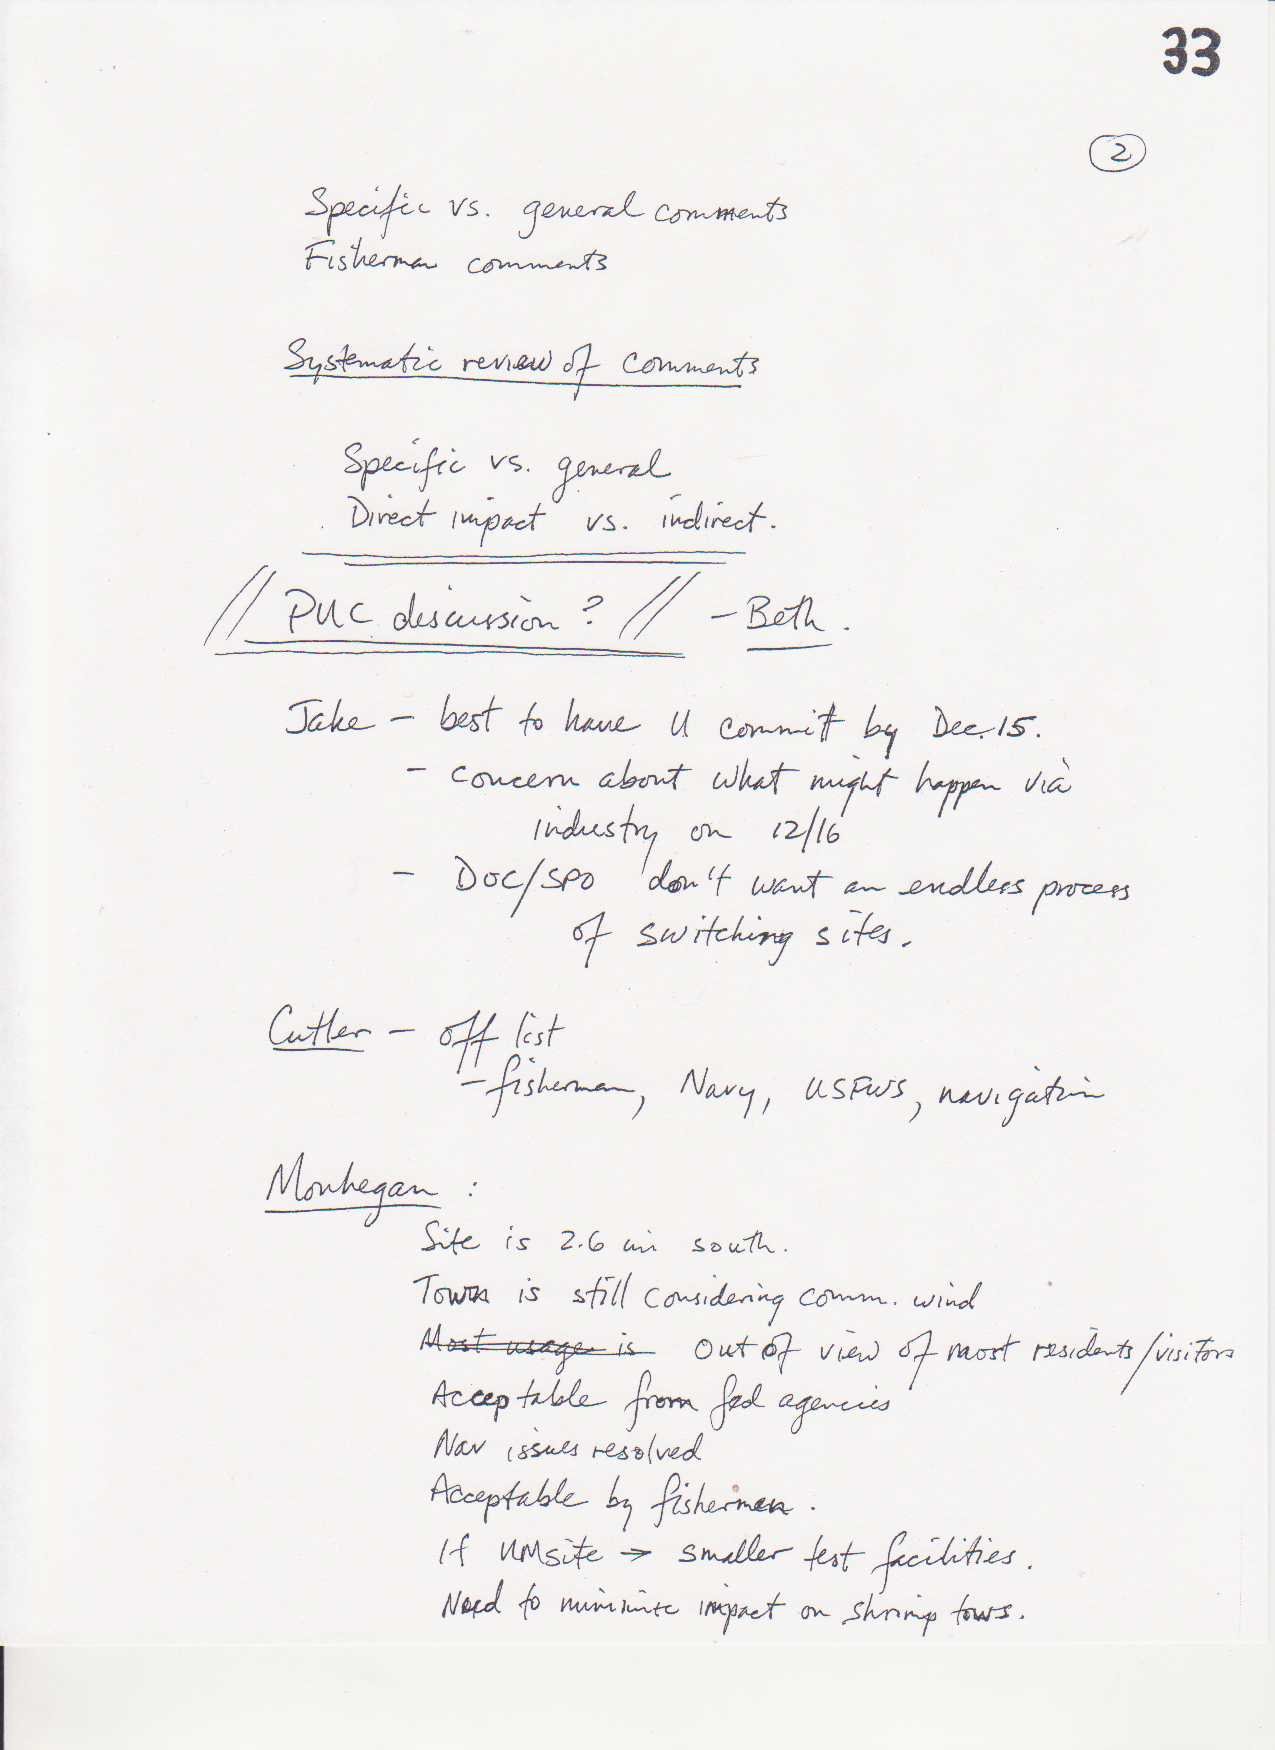 33
2
Specific vs. general comments
Fisherman comments
Systematic review of comments
Specific vs. general
Direct impact vs. indirect.
// PUC discussion? // - Beth.
Jake - best to have U commit by Dec. 15.
- concern about what might happen via
industry on 12/16
- DOC/SPO don't want an endless process
of switching sites.
Cutler - off list
- fisherman, Navy, USFWS, navigation
Monhegan :
Site is 2.6 mi south.
Town is still considering comm. wind
Most usage is out of view of most residents/visitors
Acceptable from fed agencies
Nav issues resolved
Acceptable by fishermen.
If UM site → smaller test facilities.
Need to minimize impact on shrimp tows.